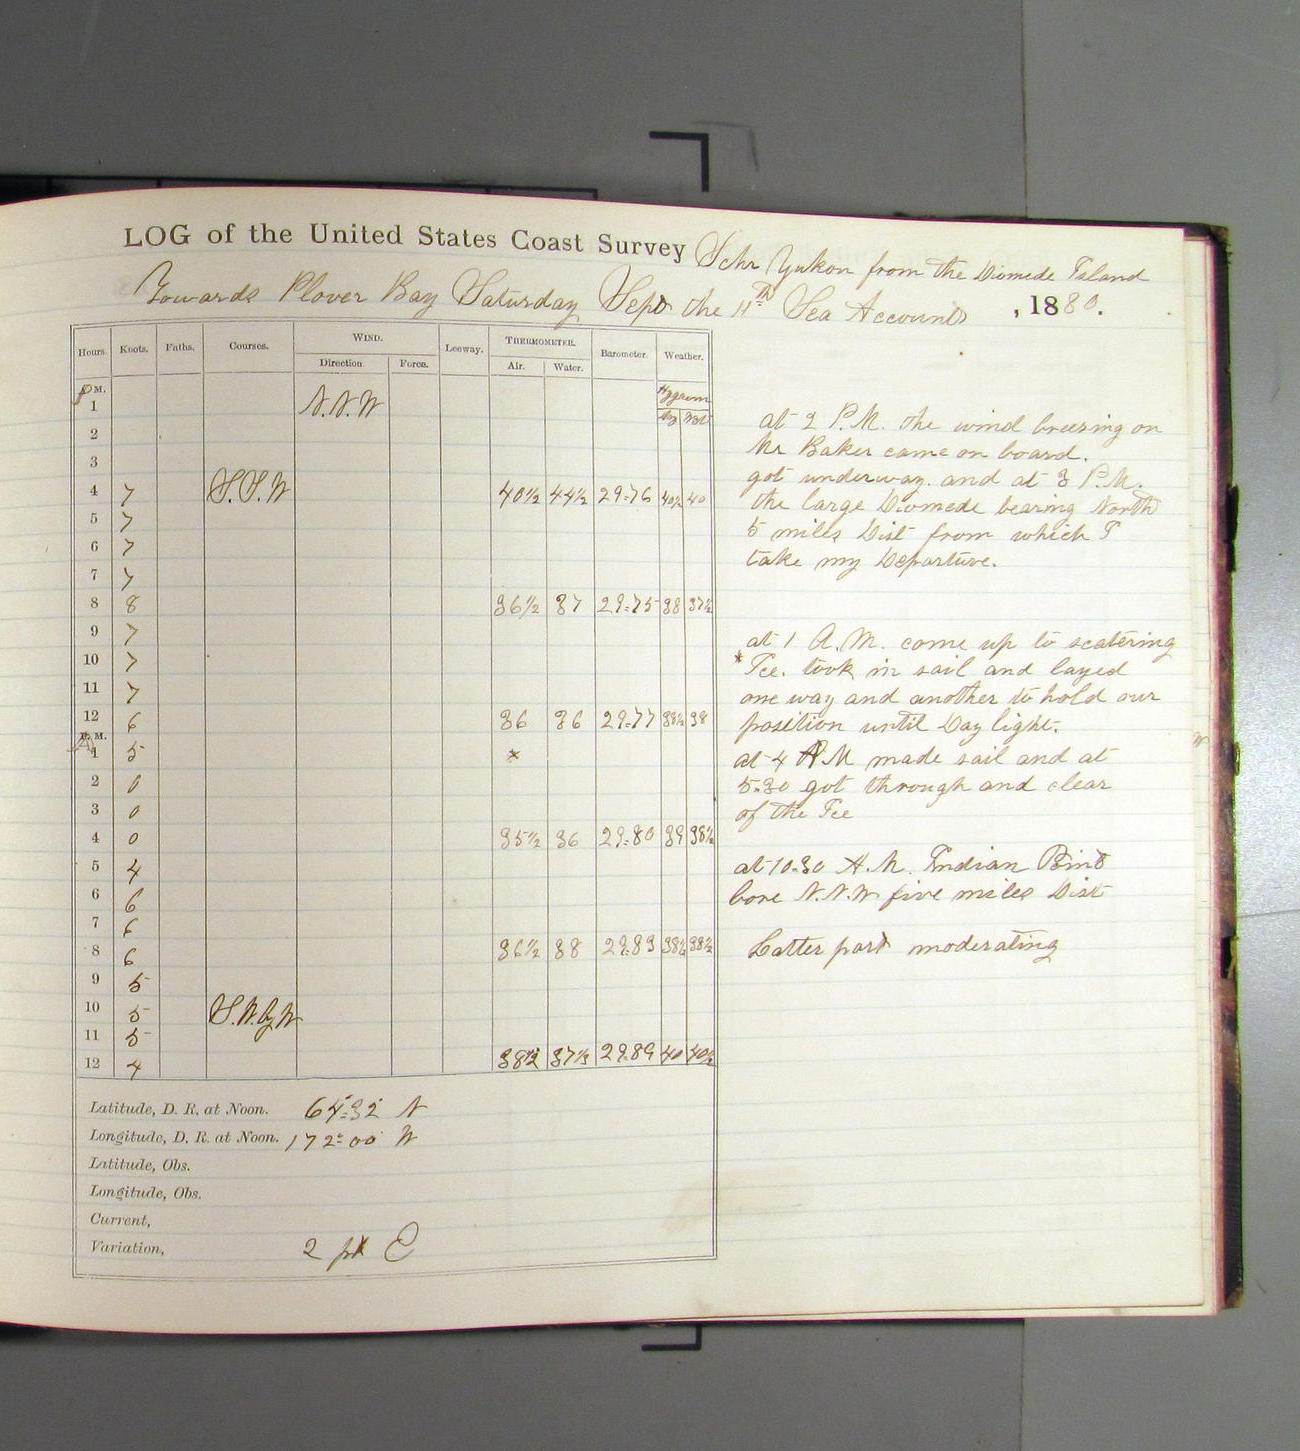 LOG of the United States Coast Survey Schr Yukon from the Diomede Island
Towards Plover Bay Saturday Sept the 11th Sea Accounts , 1880.
Hours. Knots. Faths. Courses. WIND. Leeway. THERMOMETER. Barometer. Weather.
Direction. Force. Air. Water.
P.M. Hygrom
1 N.N.W Dry Wet
2
3
4 7 S.S.W 40½ 44½ 29.76 40½ 40
5 7
6 7
7 7
8 8 36½ 37 29.75 38 37½
9 7
10 7
11 7
12 6 36 36 29.77 38½ 38
A.M.
1 5 *
2 0
3 0
4 0 35½ 36 29.80 39 38½
5 4
6 6
7 6
8 6 36½ 38 29.83 38½ 38½
9 5
10 5 S.W.by W
11 5
12 4 38½ 37½ 29.89 40 40½
Latitude, D. R. at Noon. 64.32 N
Longitude, D. R. at Noon. 172.00 W
Latitude, Obs.
Longitude, Obs.
Current,
Variation, 2 pt E
at 2 P.M. the wind breezing on
Mr Baker came on board.
got underway. and at 3 P.M.
the large Diomede bearing North
5 miles Dist from which I
take my Departure.
at 1 A.M. come up to scatering
* Ice. took in sail and layed
one way and another to hold our
position until Day light.
at 4 AM made sail and at
5.30 got through and clear
of the Ice
at 10.30 A.M. Indian Point
bore N.N.W five miles Dist
Latter part moderating